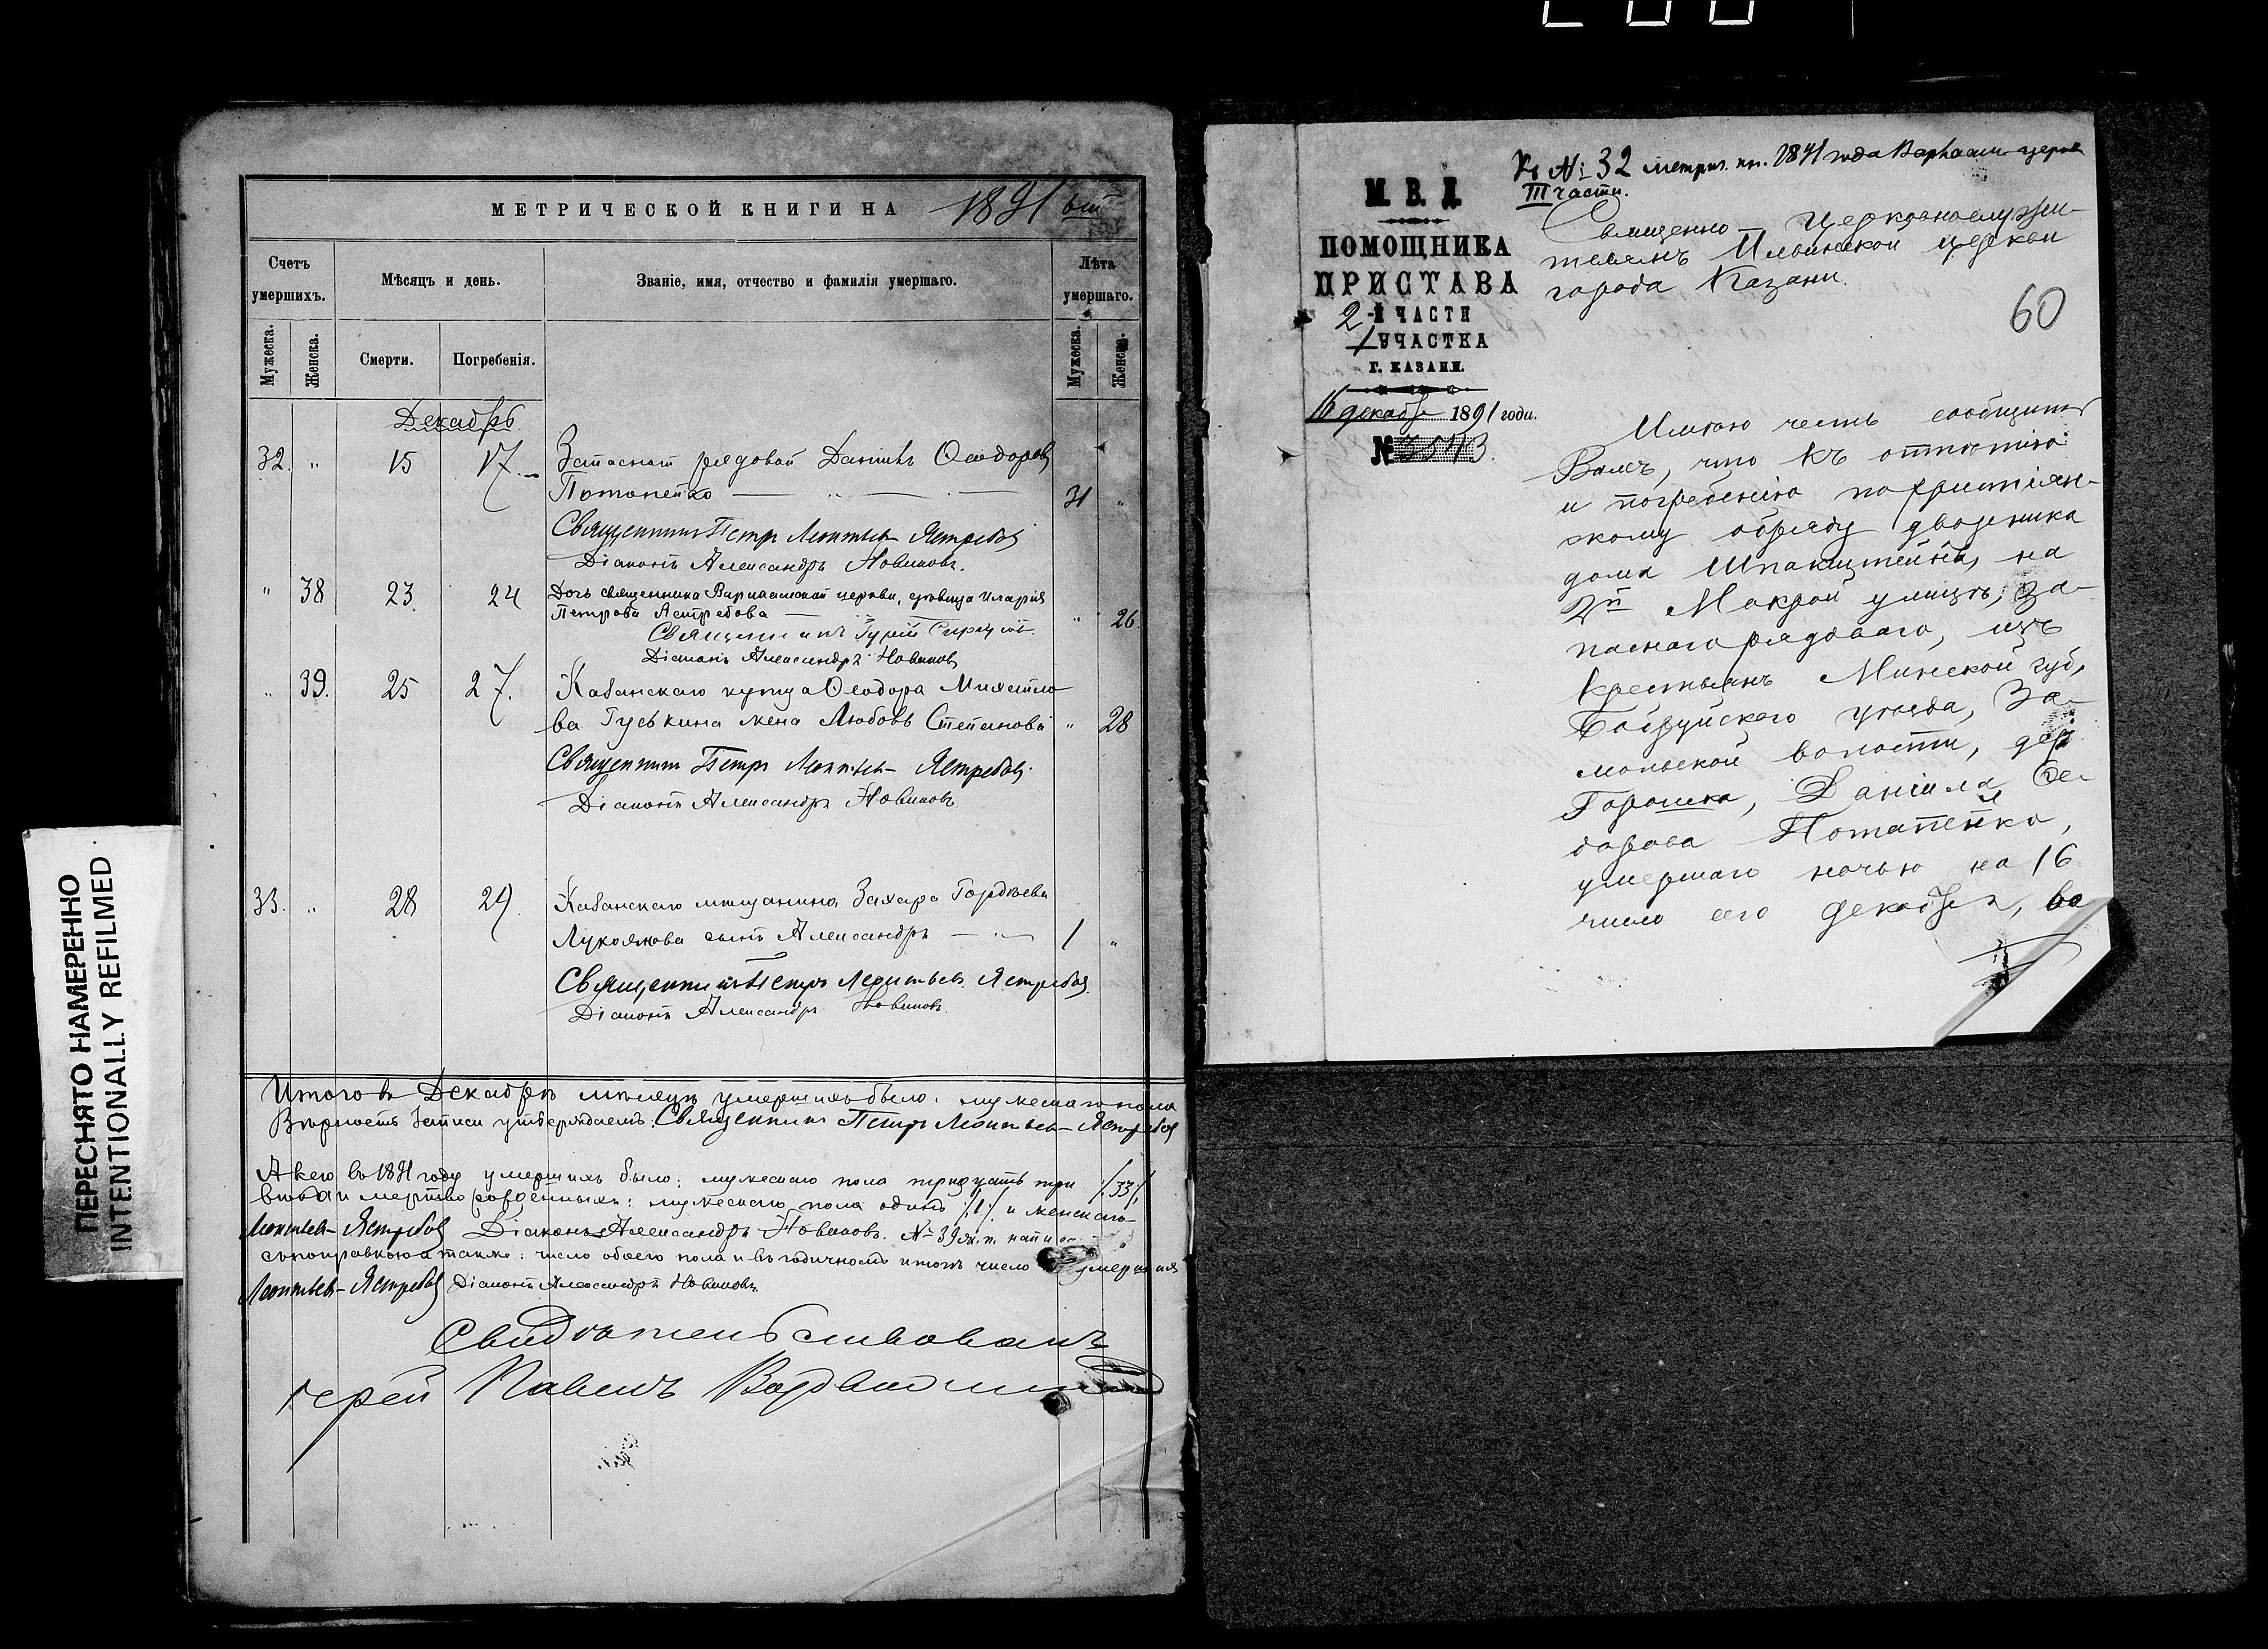 МЕТРИЧЕСКОЙ КНИГИ НА 1891
Счетъ умершихъ.
Мѣсяцъ и день.
Званіе, имя, отчество и фамилія умершаго.
Лѣта умершаго.
Мужеска.
Женска.
Смерти.
Погребенія.
Мужеска.
Женска.
Декабрь
32. " 15 17. Запасный рядовой Даниилъ Ѳеодоровъ
Потопейко 31 "
Священникъ Петръ Леонтьевъ Ястребовъ
Діаконъ Александръ Новиковъ.
" 38 23 24 Дочь священника Варлаамской церкви, дѣвица Иларія
Петрова Ястребова " 26.
Священникъ Гурій
Діаконъ Александръ Новиковъ
" 39. 25 27. Казанскаго купца Ѳеодора Михайло-
ва Гуськина жена Любовь Степанова " 28
Священникъ Петръ Леонтьевъ Ястребовъ.
Діаконъ Александръ Новиковъ
33. " 28 29 Казанскаго мѣщанина Захара Гордѣева
Лукоянова сынъ Александръ 1 "
Священникъ Петръ Леонтьевъ Ястребовъ.
Діаконъ Александръ Новиковъ.
Итого въ Декабрѣ мѣсяцѣ умершихъ было: мужескаго пола
Вѣрность записи утверждаемъ: Священникъ Петръ Леонтьевъ Ястребовъ
А всего въ 1891 году умершихъ было: мужескаго пола тридцать три /33/,
мертворожденными: мужескаго пола одинъ /1/ и женскаго
Леонтьевъ Ястребовъ Діаконъ Александръ Новиковъ. № 39
съ поправкою а также: число обоего пола и въ годичномъ итогѣ число умершихъ
Леонтьевъ Ястребовъ Діаконъ Александръ Новиковъ.
Свидѣтельствовалъ
Іерей Павелъ
ПЕРЕСНЯТО НАМЕРЕННО
INTENTIONALLY REFILMED
Къ № 32 метрич. кн. 1891 года Варлаам. церкви
III части.
М. В. Д.
ПОМОЩНИКА
ПРИСТАВА
2-Й ЧАСТИ
1 УЧАСТКА
Г. КАЗАНИ.
16 декабря 1891 года.
№ 3543.
Священно-церковнослужи-
телямъ Ильинской церкви
города Казани.
60
Имѣю честь сообщить
Вамъ, что къ отпѣтію
и погребенію по христіян-
скому обряду дворника
дома Шпакштейна, на
2й Мокрой улицѣ, за-
паснаго рядоваго, изъ
крестьянъ Минской губ,
Бобруйскаго уѣзда, За-
мольской волости, дер.
Горошка, Даніила Ѳе-
дорова Потапейко,
умершаго ночью на 16
число сего декабря, во